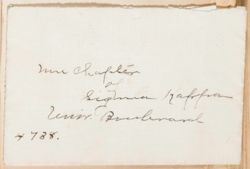 Mu Chapter
of
Sigma Kappa
Univ. Boulevard
4738.